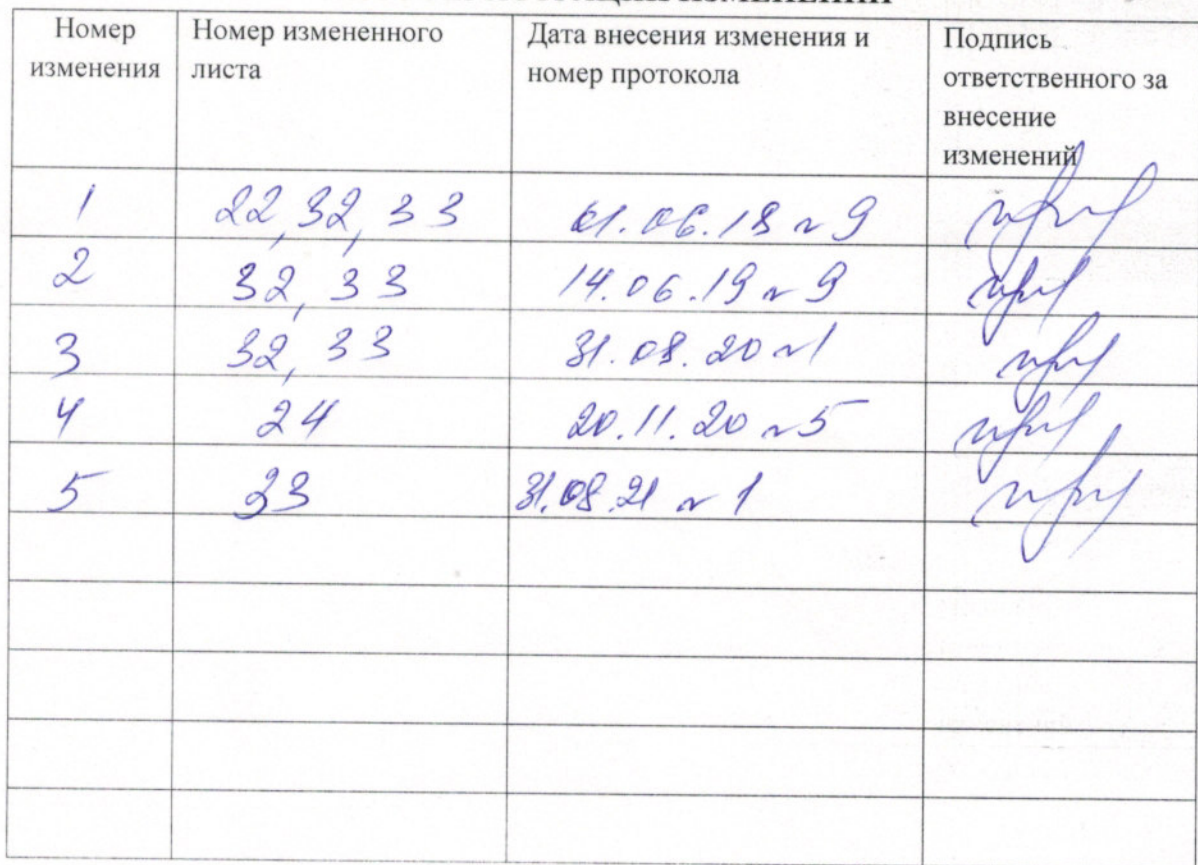 Номер изменения Номер измененного листа Дата внесения изменения и номер протокола Подпись ответственного за внесение изменений
1 22, 32, 33 01.06.18 № 9
2 32, 33 14.06.19 № 9
3 32, 33 31.08.20 № 1
4 24 20.11.20 № 5
5 33 31.08.21 № 1